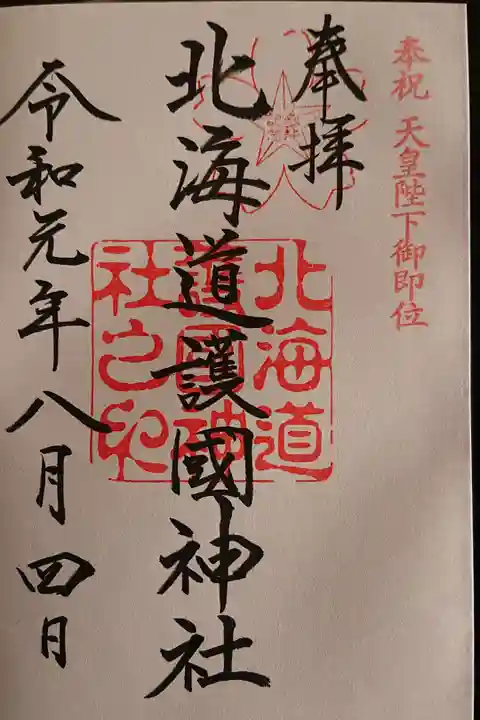 奉祝 天皇陛下御即位
奉拝
北海道護國神社
北海道
護國神
社之印
令和元年八月四日